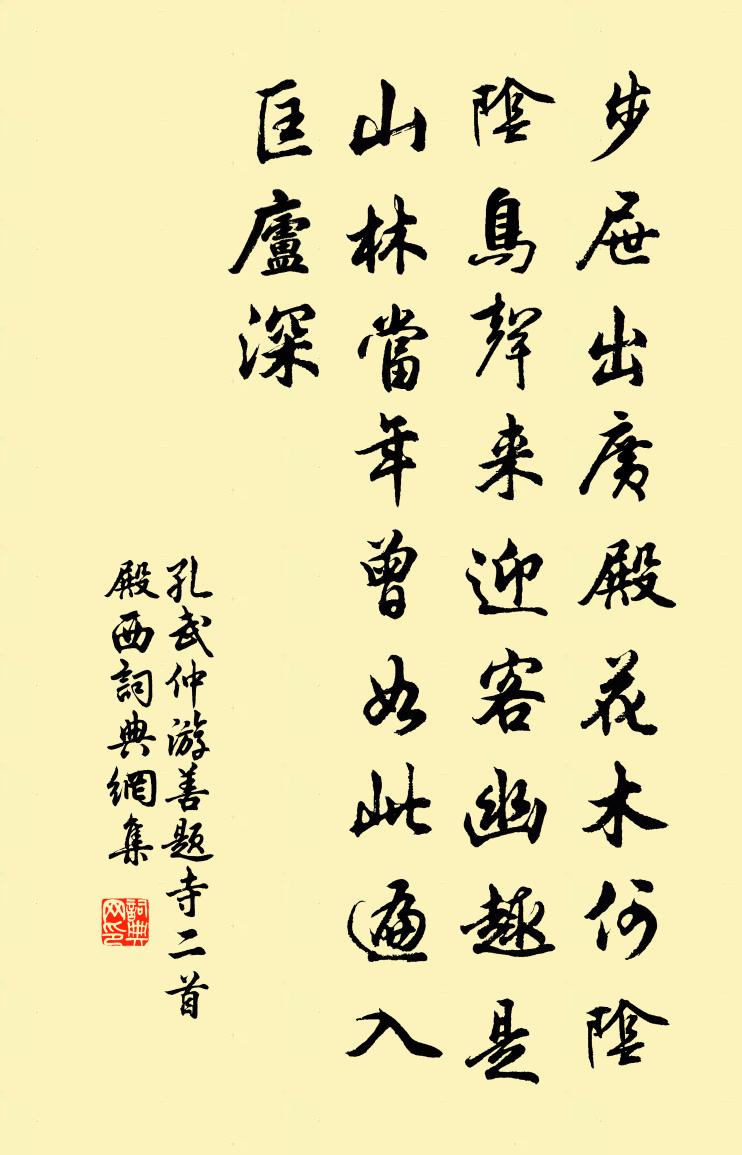 步屧出廣殿花木何陰
陰鳥聲来迎客幽趣是
山林當年曾如此遍入
匡廬深
孔武仲游善题寺二首
殿西詞典網集
詞典网印